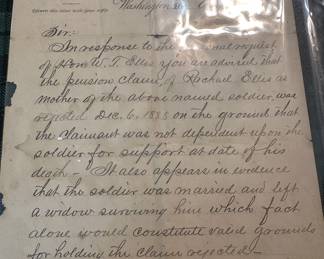 Washington
Sir:
In response to the request
of Hon W. T. Ellis you are advised that
the pension claim of Rachael Ellis as
mother of the above named soldier, was
rejected Dec. 6, 1895 on the ground that
the claimant was not dependent upon the
soldier for support at date of his
death - It also appears in evidence
that the soldier was married and left
a widow surviving him which fact
alone would constitute valid grounds
for holding the claim rejected. -